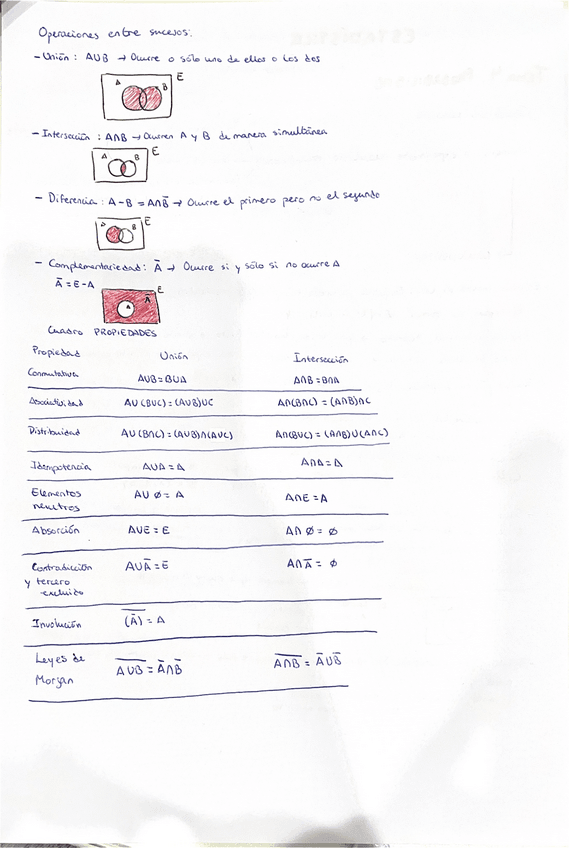 Operaciones entre sucesos:
- Unión: A∪B → Ocurre o sólo uno de ellos o los dos
A B E
- Intersección: A∩B → Ocurren A y B de manera simultánea
A B E
- Diferencia: A-B = A∩B̅ → Ocurre el primero pero no el segundo
A B E
- Complementariedad: A̅ → Ocurre si y sólo si no ocurre A
A̅ = E-A
A A̅ E
Cuadro PROPIEDADES
Propiedad Unión Intersección
Conmutativa A∪B=B∪A A∩B=B∩A
Asociatividad A∪(B∪C) = (A∪B)∪C A∩(B∩C) = (A∩B)∩C
Distribuidad A∪(B∩C) = (A∪B)∩(A∪C) A∩(B∪C) = (A∩B)∪(A∩C)
Idempotencia A∪A = A A∩A = A
Elementos A∪∅ = A A∩E = A
neutros
Absorción A∪E = E A∩∅ = ∅
Contradicción A∪A̅ = E A∩A̅ = ∅
y tercero
excluido
Involución (A̅)̅ = A
Leyes de A̅∪̅B̅ = A̅∩B̅ A̅∩̅B̅ = A̅∪B̅
Morgan